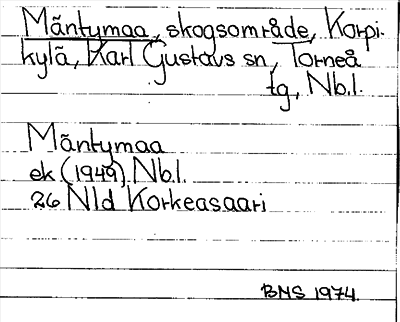 Mäntymaa, skogsområde, Korpi-
kylä, Karl Gustavs sn, Torneå
tg, Nb.l.
Mäntymaa
ek (1949), Nb.l.
26 Nld Korkeasaari
BMS 1974.